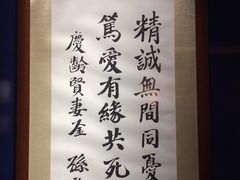 精誠無間同憂
篤愛有緣共死
慶齡賢妻鑒 孫